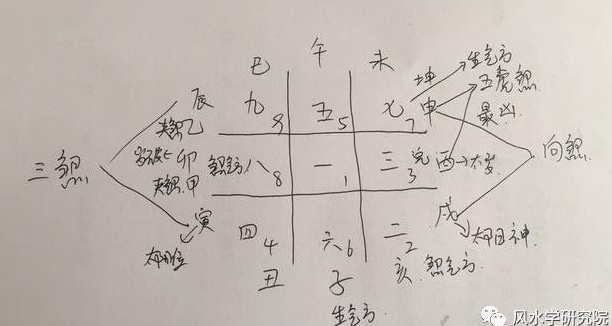 巳 午 未
坤 生气方
五鬼煞
最凶
辰 九 9 五 5 七 7 申
夹煞乙
三煞 岁破 卯 煞气方 八 8 一 1 三 3 兑 酉→太岁 向煞
夹煞甲
寅 四 4 六 6 二 2 戌
丑 子 亥 煞气方
生气方
风水学研究院